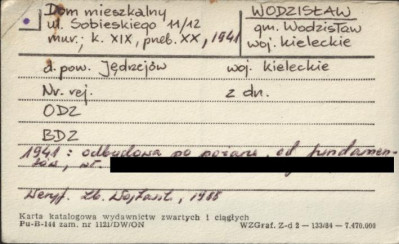 Dom mieszkalny
ul. Sobieskiego 11/12
mur.; k. XIX, pneb. XX, 1941
WODZISŁAW
gm. Wodzisław
woj. kieleckie
d. pow. Jędrzejów woj. kieleckie
Nr. rej. z dn.
ODZ
BDZ
1941: odbudowa po pożarze od fundamen-
tów,
Weryf. 1988
Karta katalogowa wydawnictw zwartych i ciągłych
Pu-B-144 zam. nr 1121/DW/ON WZGraf. Z-d 2 — 133/84 — 7.470.000